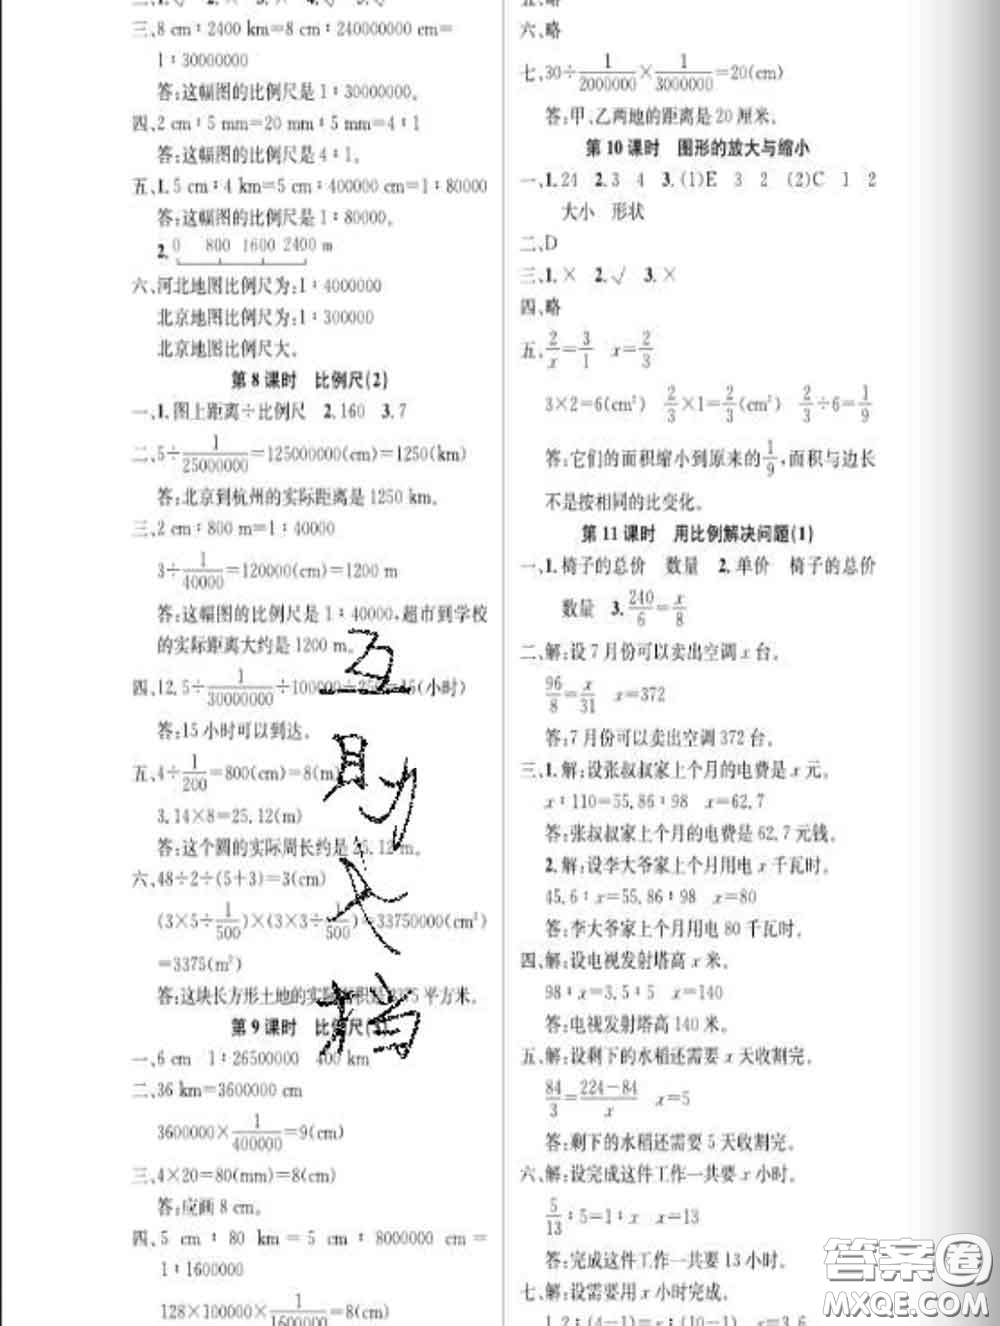 三、8 cm∶2400 km=8 cm∶240000000 cm=
1∶30000000
答:这幅图的比例尺是 1∶30000000。
四、2 cm∶5 mm=20 mm∶5 mm=4∶1
答:这幅图的比例尺是 4∶1。
五、1. 5 cm∶4 km=5 cm∶400000 cm=1∶80000
答:这幅图的比例尺是 1∶80000。
2. 0 800 1600 2400 m
六、河北地图比例尺为:1∶4000000
北京地图比例尺为:1∶300000
北京地图比例尺大。
第 8 课时 比例尺(2)
一、1. 图上距离÷比例尺 2. 160 3. 7
二、5÷1/25000000=125000000(cm)=1250(km)
答:北京到杭州的实际距离是 1250 km。
三、2 cm∶800 m=1∶40000
3÷1/40000=120000(cm)=1200 m
答:这幅图的比例尺是 1∶40000,超市到学校
的实际距离大约是 1200 m。
四、12.5÷1/30000000÷100000÷250=15(小时)
答:15 小时可以到达。
五、4÷1/200=800(cm)=8(m)
3.14×8=25.12(m)
答:这个圆的实际周长约是 25.12 m。
六、48÷2÷(5+3)=3(cm)
(3×5÷1/500)×(3×3÷1/500)=33750000(cm²)
=3375(m²)
答:这块长方形土地的实际面积是 3375 平方米。
第 9 课时 比例尺(3)
一、6 cm 1∶26500000 400 km
二、36 km=3600000 cm
3600000×1/400000=9(cm)
三、4×20=80(mm)=8(cm)
答:应画 8 cm。
四、5 cm∶80 km=5 cm∶8000000 cm=
1∶1600000
128×100000×1/1600000=8(cm)
五、略
六、略
七、30÷1/2000000×1/3000000=20(cm)
答:甲、乙两地的距离是 20 厘米。
第 10 课时 图形的放大与缩小
一、1. 24 2. 3 4 3. (1)E 3 2 (2)C 1 2
大小 形状
二、D
三、1. × 2. √ 3. ×
四、略
五、2/x=3/1 x=2/3
3×2=6(cm²) 2/3×1=2/3(cm²) 2/3÷6=1/9
答:它们的面积缩小到原来的1/9,面积与边长
不是按相同的比变化。
第 11 课时 用比例解决问题(1)
一、1. 椅子的总价 数量 2. 单价 椅子的总价
数量 3. 240/6=x/8
二、解:设 7 月份可以卖出空调 x 台。
96/8=x/31 x=372
答:7 月份可以卖出空调 372 台。
三、1. 解:设张叔叔家上个月的电费是 x 元。
x∶110=55.86∶98 x=62.7
答:张叔叔家上个月的电费是 62.7 元钱。
2. 解:设李大爷家上个月用电 x 千瓦时。
45.6∶x=55.86∶98 x=80
答:李大爷家上个月用电 80 千瓦时。
四、解:设电视发射塔高 x 米。
98∶x=3.5∶5 x=140
答:电视发射塔高 140 米。
五、解:设剩下的水稻还需要 x 天收割完。
84/3=224-84/x x=5
答:剩下的水稻还需要 5 天收割完。
六、解:设完成这件工作一共要 x 小时。
5/13∶5=1∶x x=13
答:完成这件工作一共要 13 小时。
七、解:设需要用 x 小时完成。
1.2∶(4-1)=x∶(10-1) x=3.6
互助文档
答案圈
MXQE.COM